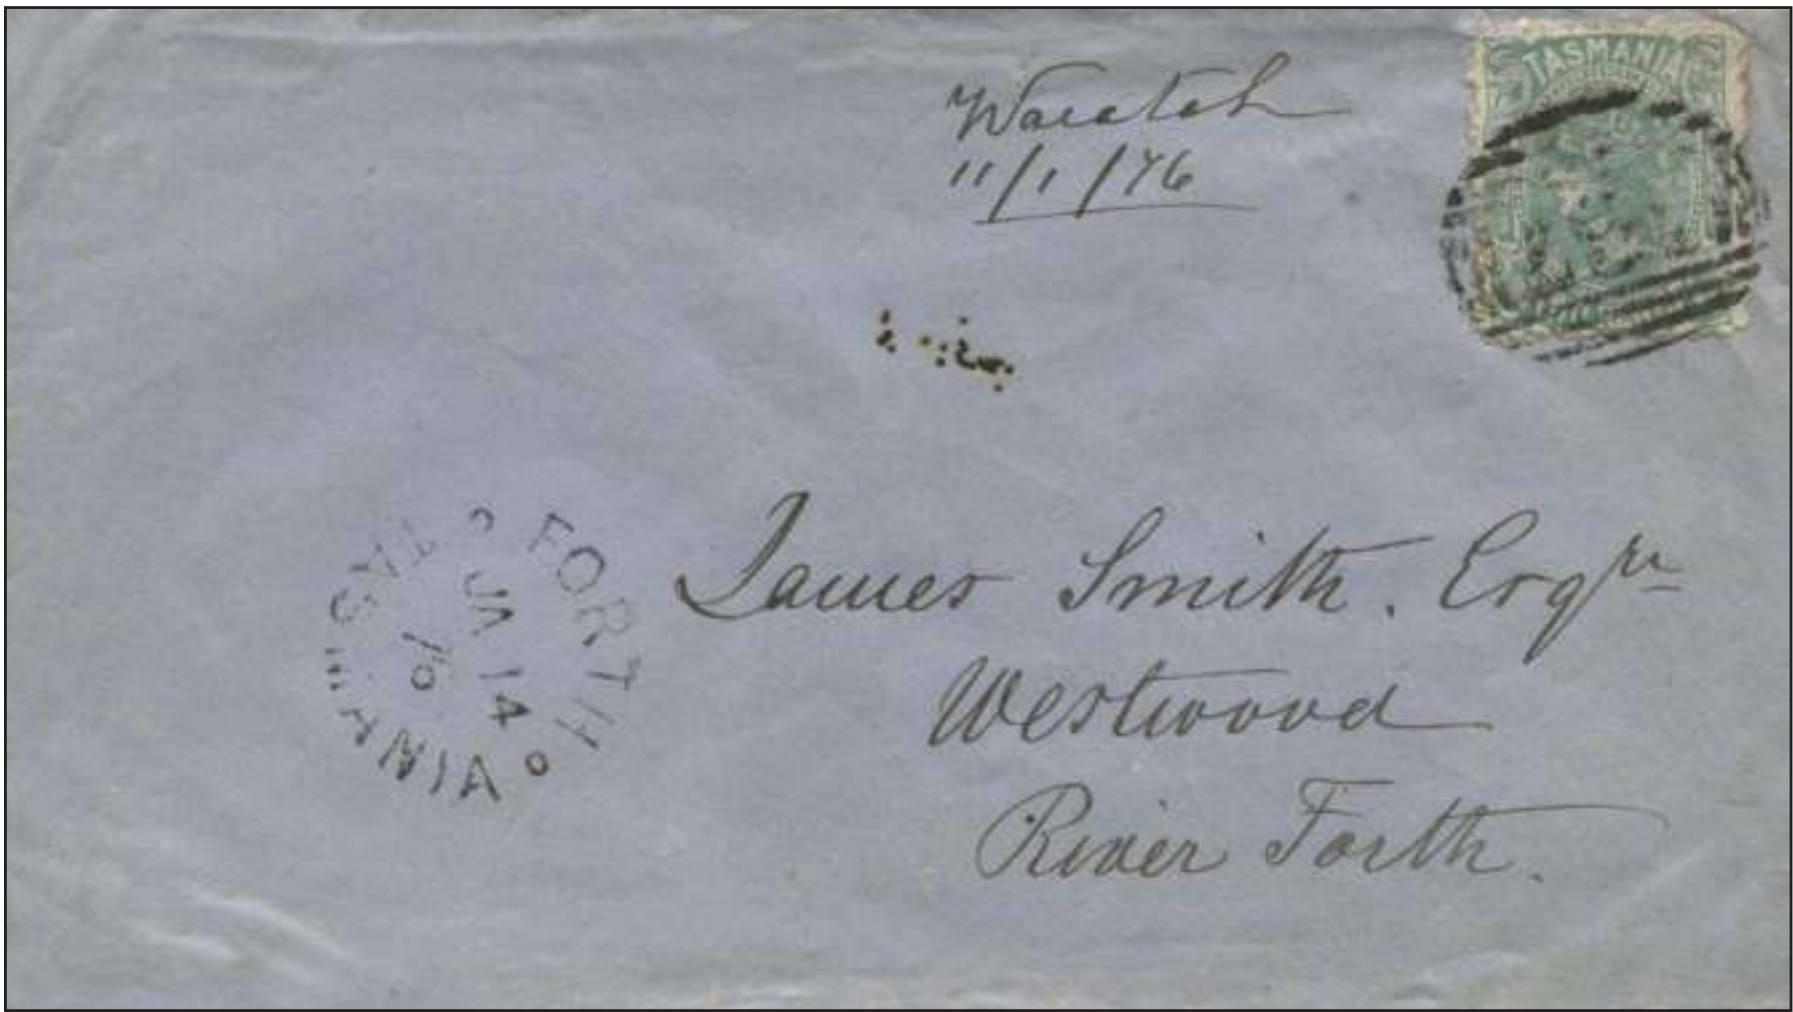 TASMANIA
Waratah
11/1/76
FORTH
TASMANIA
JA 14
76
James Smith. Esqre
Westwood
River Forth.